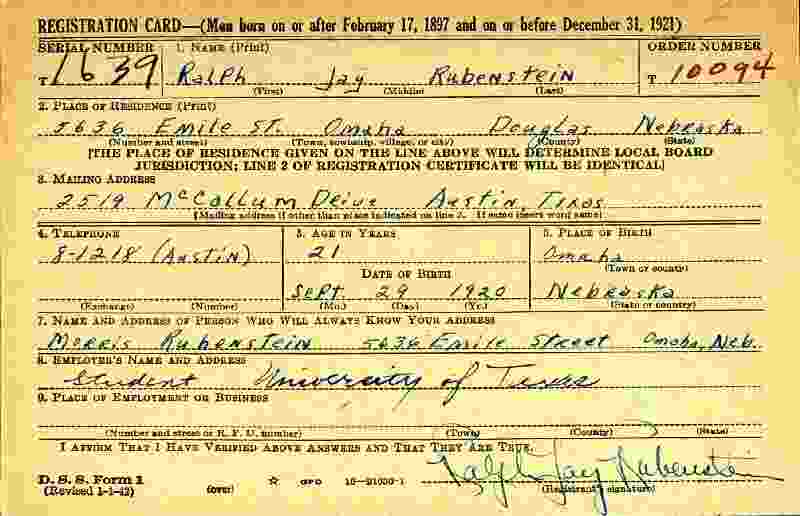 REGISTRATION CARD—(Men born on or after February 17, 1897 and on or before December 31, 1921)
SERIAL NUMBER 1. NAME (Print) ORDER NUMBER
T 1639 Ralph Jay Rubenstein T 10094
(First) (Middle) (Last)
2. PLACE OF RESIDENCE (Print)
5636 Emile St. Omaha Douglas Nebraska
(Number and street) (Town, township, village, or city) (County) (State)
[THE PLACE OF RESIDENCE GIVEN ON THE LINE ABOVE WILL DETERMINE LOCAL BOARD
JURISDICTION; LINE 2 OF REGISTRATION CERTIFICATE WILL BE IDENTICAL]
3. MAILING ADDRESS
2519 McCallum Drive Austin, Texas
[Mailing address if other than place indicated on line 2. If same insert word same]
4. TELEPHONE 5. AGE IN YEARS 6. PLACE OF BIRTH
8-1218 (Austin) 21 Omaha
(Town or county)
DATE OF BIRTH
Sept. 29 1920 Nebraska
(Exchange) (Number) (Mo.) (Day) (Yr.) (State or country)
7. NAME AND ADDRESS OF PERSON WHO WILL ALWAYS KNOW YOUR ADDRESS
Morris Rubenstein 5636 Emile Street Omaha, Neb.
8. EMPLOYER'S NAME AND ADDRESS
Student University of Texas
9. PLACE OF EMPLOYMENT OR BUSINESS
(Number and street or R. F. D. number) (Town) (County) (State)
I AFFIRM THAT I HAVE VERIFIED ABOVE ANSWERS AND THAT THEY ARE TRUE.
D. S. S. Form 1 Ralph Jay Rubenstein
(Revised 1-1-42) (over) ☆ GPO 16—21630-1 (Registrant's signature)